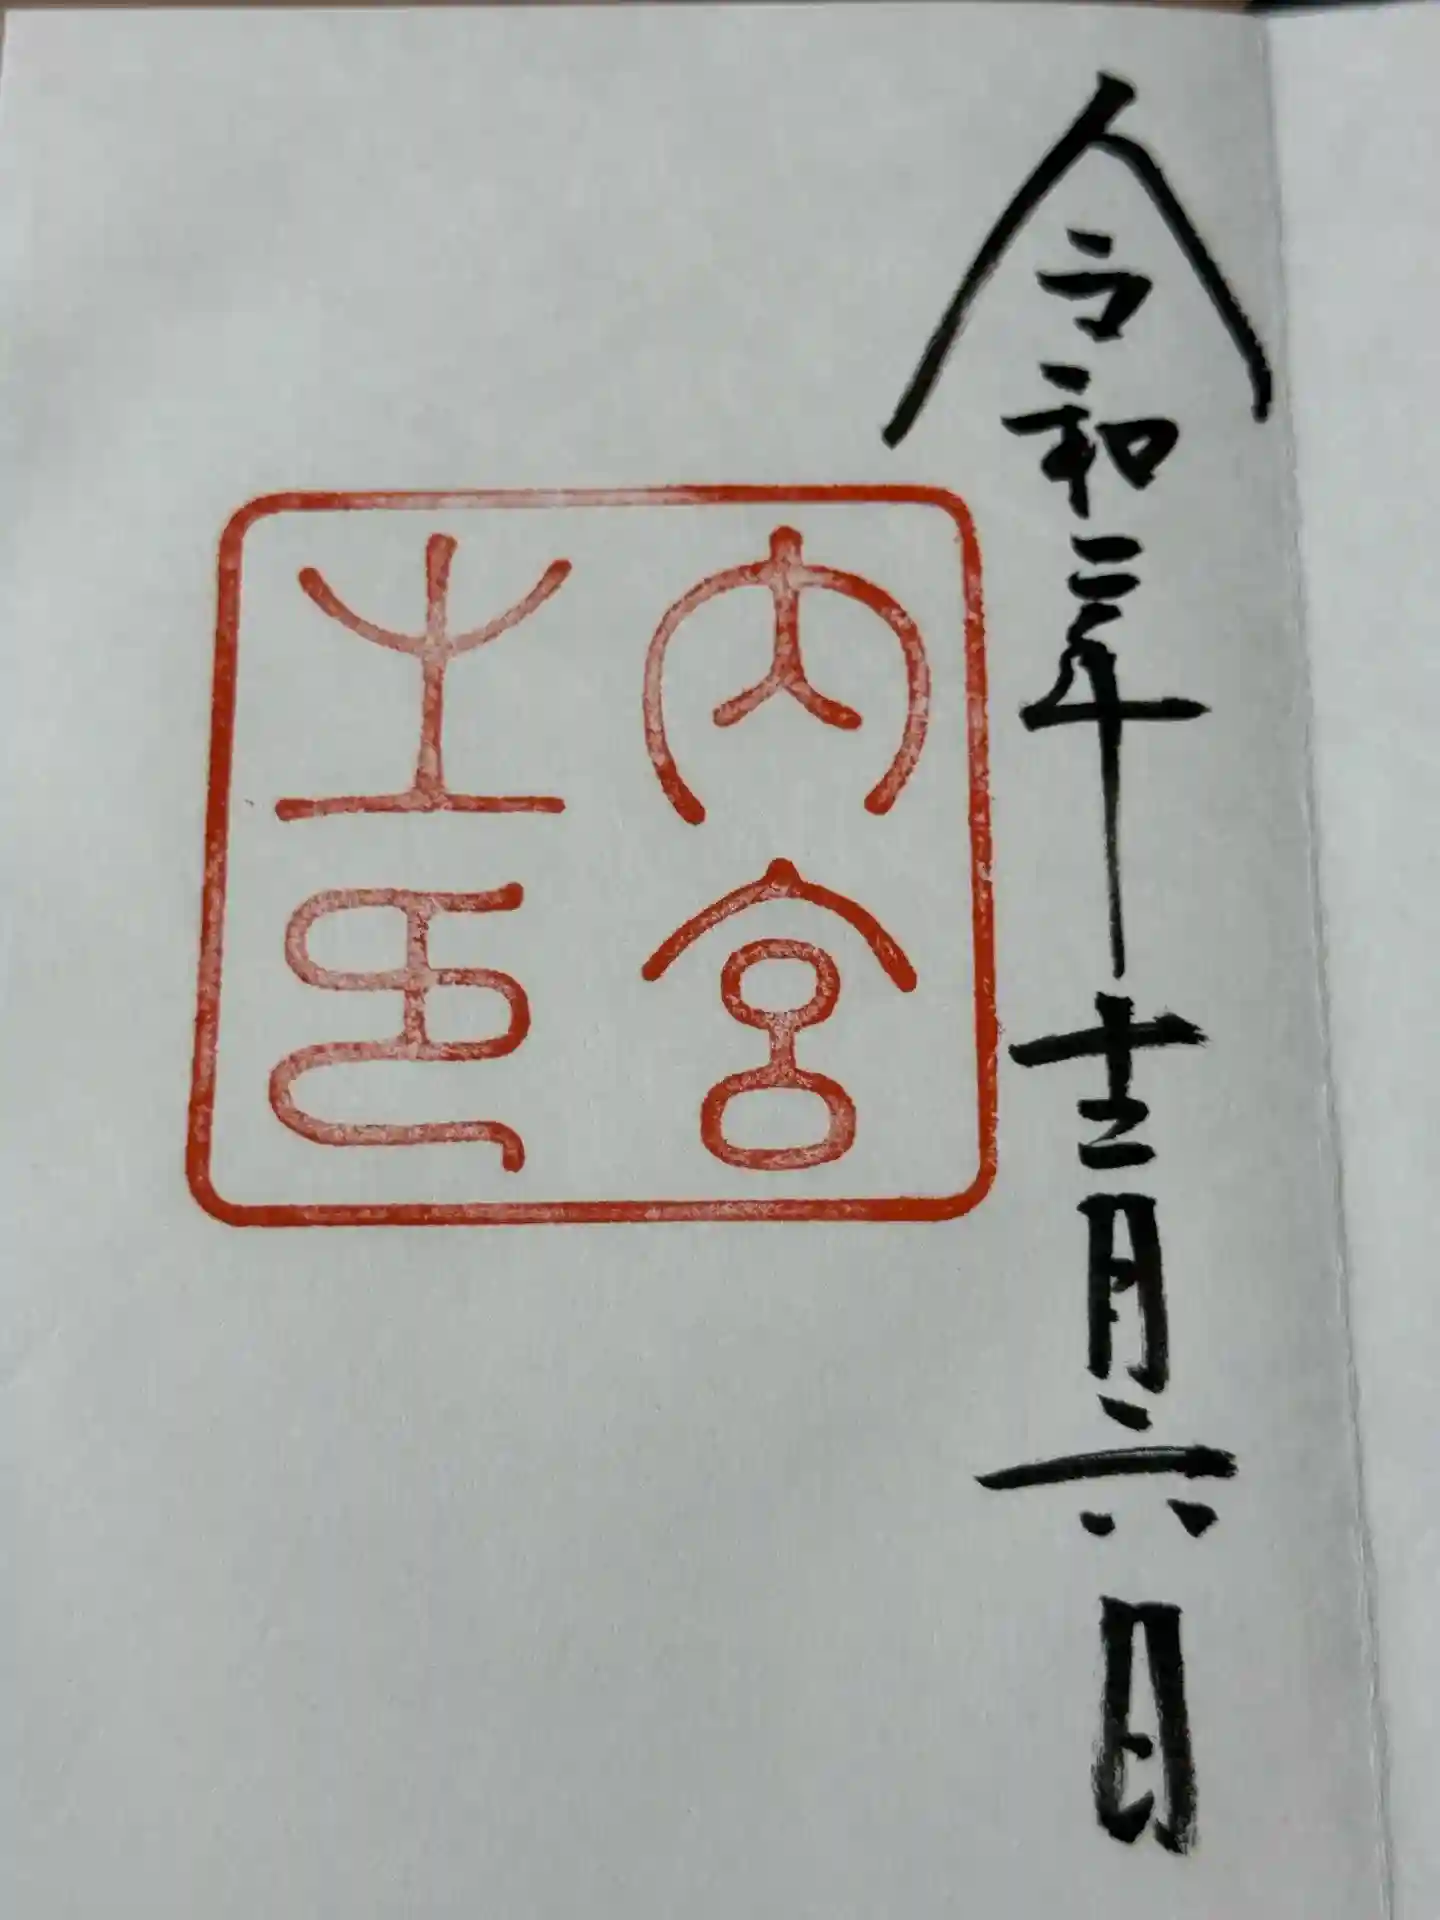 令和三年十二月六日
内宮
之印